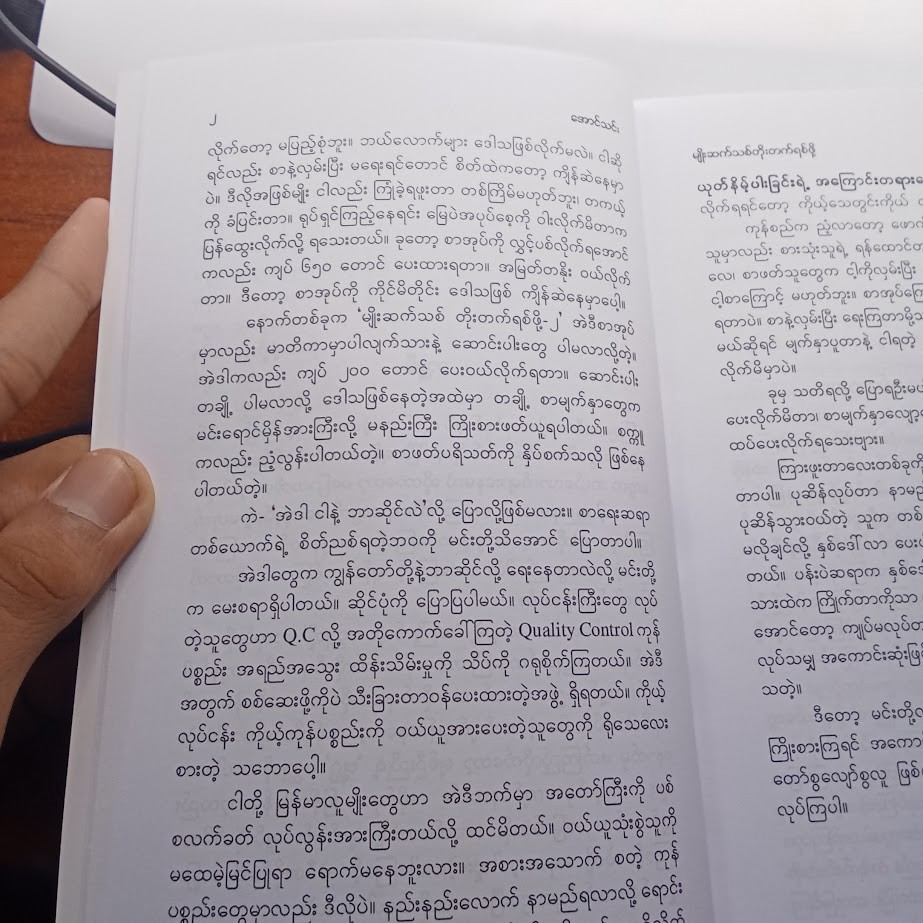 ၂
အောင်သင်း
လိုက်တော့ မပြည့်စုံဘူး။ ဘယ်လောက်များ ဒေါသဖြစ်လိုက်မလဲ။ ငါဆို
ရင်လည်း စာနဲ့လှမ်းပြီး မရေးရင်တောင် စိတ်ထဲကတော့ ကျိန်ဆဲနေမှာ
ပဲ။ ဒီလိုအဖြစ်မျိုး ငါလည်း ကြုံခဲ့ရဖူးတာ တစ်ကြိမ်မဟုတ်ဘူး၊ တကယ့်
ကို ခံပြင်းတာ။ ရုပ်ရှင်ကြည့်နေရင်း မြေပဲအပုပ်စေ့ကို ဝါးလိုက်မိတာက
ပြန်ထွေးလိုက်လို့ ရသေးတယ်။ ခုတော့ စာအုပ်ကို လွှင့်ပစ်လိုက်ရအောင်
ကလည်း ကျပ် ၆၅၀ တောင် ပေးထားရတာ။ အမြတ်တနိုး ဝယ်လိုက်
တာ။ ဒီတော့ စာအုပ်ကို ကိုင်မိတိုင်း ဒေါသဖြစ် ကျိန်ဆဲနေမှာပေါ့။
နောက်တစ်ခုက ‘မျိုးဆက်သစ် တိုးတက်ရစ်ဖို့-၂’ အဲဒီစာအုပ်
မှာလည်း မာတိကာမှာပါလျက်သားနဲ့ ဆောင်းပါးတွေ ပါမလာလို့တဲ့။
အဲဒါကလည်း ကျပ် ၂၀၀ တောင် ပေးဝယ်လိုက်ရတာ။ ဆောင်းပါး
တချို့ ပါမလာလို့ ဒေါသဖြစ်နေတဲ့အထဲမှာ တချို့ စာမျက်နှာတွေက
မင်းရောင်မှိန်အားကြီးလို့ မနည်းကြီး ကြိုးစားဖတ်ယူရပါတယ်။ စက္ကူ
ကလည်း ညံ့လွန်းပါတယ်တဲ့။ စာဖတ်ပရိသတ်ကို နှိပ်စက်သလို ဖြစ်နေ
ပါတယ်တဲ့။
ကဲ- ‘အဲဒါ ငါနဲ့ ဘာဆိုင်လဲ’လို့ ပြောလို့ဖြစ်မလား။ စာရေးဆရာ
တစ်ယောက်ရဲ့ စိတ်ညစ်ရတဲ့ဘဝကို မင်းတို့သိအောင် ပြောတာပါ။
အဲဒါတွေက ကျွန်တော်တို့နဲ့ဘာဆိုင်လို့ ရေးနေတာလဲလို့ မင်းတို့
က မေးစရာရှိပါတယ်။ ဆိုင်ပုံကို ပြောပြပါမယ်။ လုပ်ငန်းကြီးတွေ လုပ်
တဲ့သူတွေဟာ Q.C လို့ အတိုကောက်ခေါ်ကြတဲ့ Quality Control ကုန်
ပစ္စည်း အရည်အသွေး ထိန်းသိမ်းမှုကို သိပ်ကို ဂရုစိုက်ကြတယ်။ အဲဒီ
အတွက် စစ်ဆေးဖို့ကိုပဲ သီးခြားတာဝန်ပေးထားတဲ့အဖွဲ့ ရှိရတယ်။ ကိုယ့်
လုပ်ငန်း ကိုယ့်ကုန်ပစ္စည်းကို ဝယ်ယူအားပေးတဲ့သူတွေကို ရိုသေလေး
စားတဲ့ သဘောပေါ့။
ငါတို့ မြန်မာလူမျိုးတွေဟာ အဲဒီဘက်မှာ အတော်ကြီးကို ပစ်
စလက်ခတ် လုပ်လွန်းအားကြီးတယ်လို့ ထင်မိတယ်။ ဝယ်ယူသုံးစွဲသူကို
မထေမဲ့မြင်ပြုရာ ရောက်မနေဘူးလား။ အစားအသောက် စတဲ့ ကုန်
ပစ္စည်းတွေမှာလည်း ဒီလိုပဲ။ နည်းနည်းလောက် နာမည်ရလာလို့ ရောင်း
မျိုးဆက်သစ်တိုးတက်ရစ်ဖို့
ယုတ်နိမ့်ပါးခြင်းရဲ့ အကြောင်းတရား
လိုက်ရရင်တော့ ကိုယ့်သေတွင်းကိုယ်
ကုန်စည်က ညံ့လာတော့
သူမှာလည်း စားသုံးသူရဲ့ ရန်ထောင်
လေ၊ စာဖတ်သူတွေက ငါ့ကိုလှမ်းပြီး
ငါ့စာကြောင့် မဟုတ်ဘူး။
ရတာပဲ။ စာနဲ့လှမ်းပြီး ရေးကြတာမို့
မယ်ဆိုရင် မျက်နှာပူတာနဲ့ ငါရတဲ့
လိုက်မိမှာပဲ။
ခုမှ သတိရလို့ ပြောရဦးမယ်
ပေးလိုက်မိတာ၊ စာမျက်နှာလျော့
ထပ်ပေးလိုက်ရသေးဗျား။
ကြားဖူးတာလေးတစ်ခုကို
တာပါ။ ပုဆိန်လုပ်တာ နာမည်
ပုဆိန်သွားဝယ်တဲ့ သူက တစ်
မလိုချင်လို့ နှစ်ဒေါ်လာ ပေး
တယ်။ ပန်းပဲဆရာက
သားထဲက ကြိုက်တာကိုသာ
အောင်တော့ ကျုပ်မလုပ်
လုပ်သမျှ အကောင်းဆုံး
သတဲ့။
ဒီတော့ မင်းတို့
ကြိုးစားကြရင်
တော်စွလျော်စွလူ
လုပ်ကြပါ။